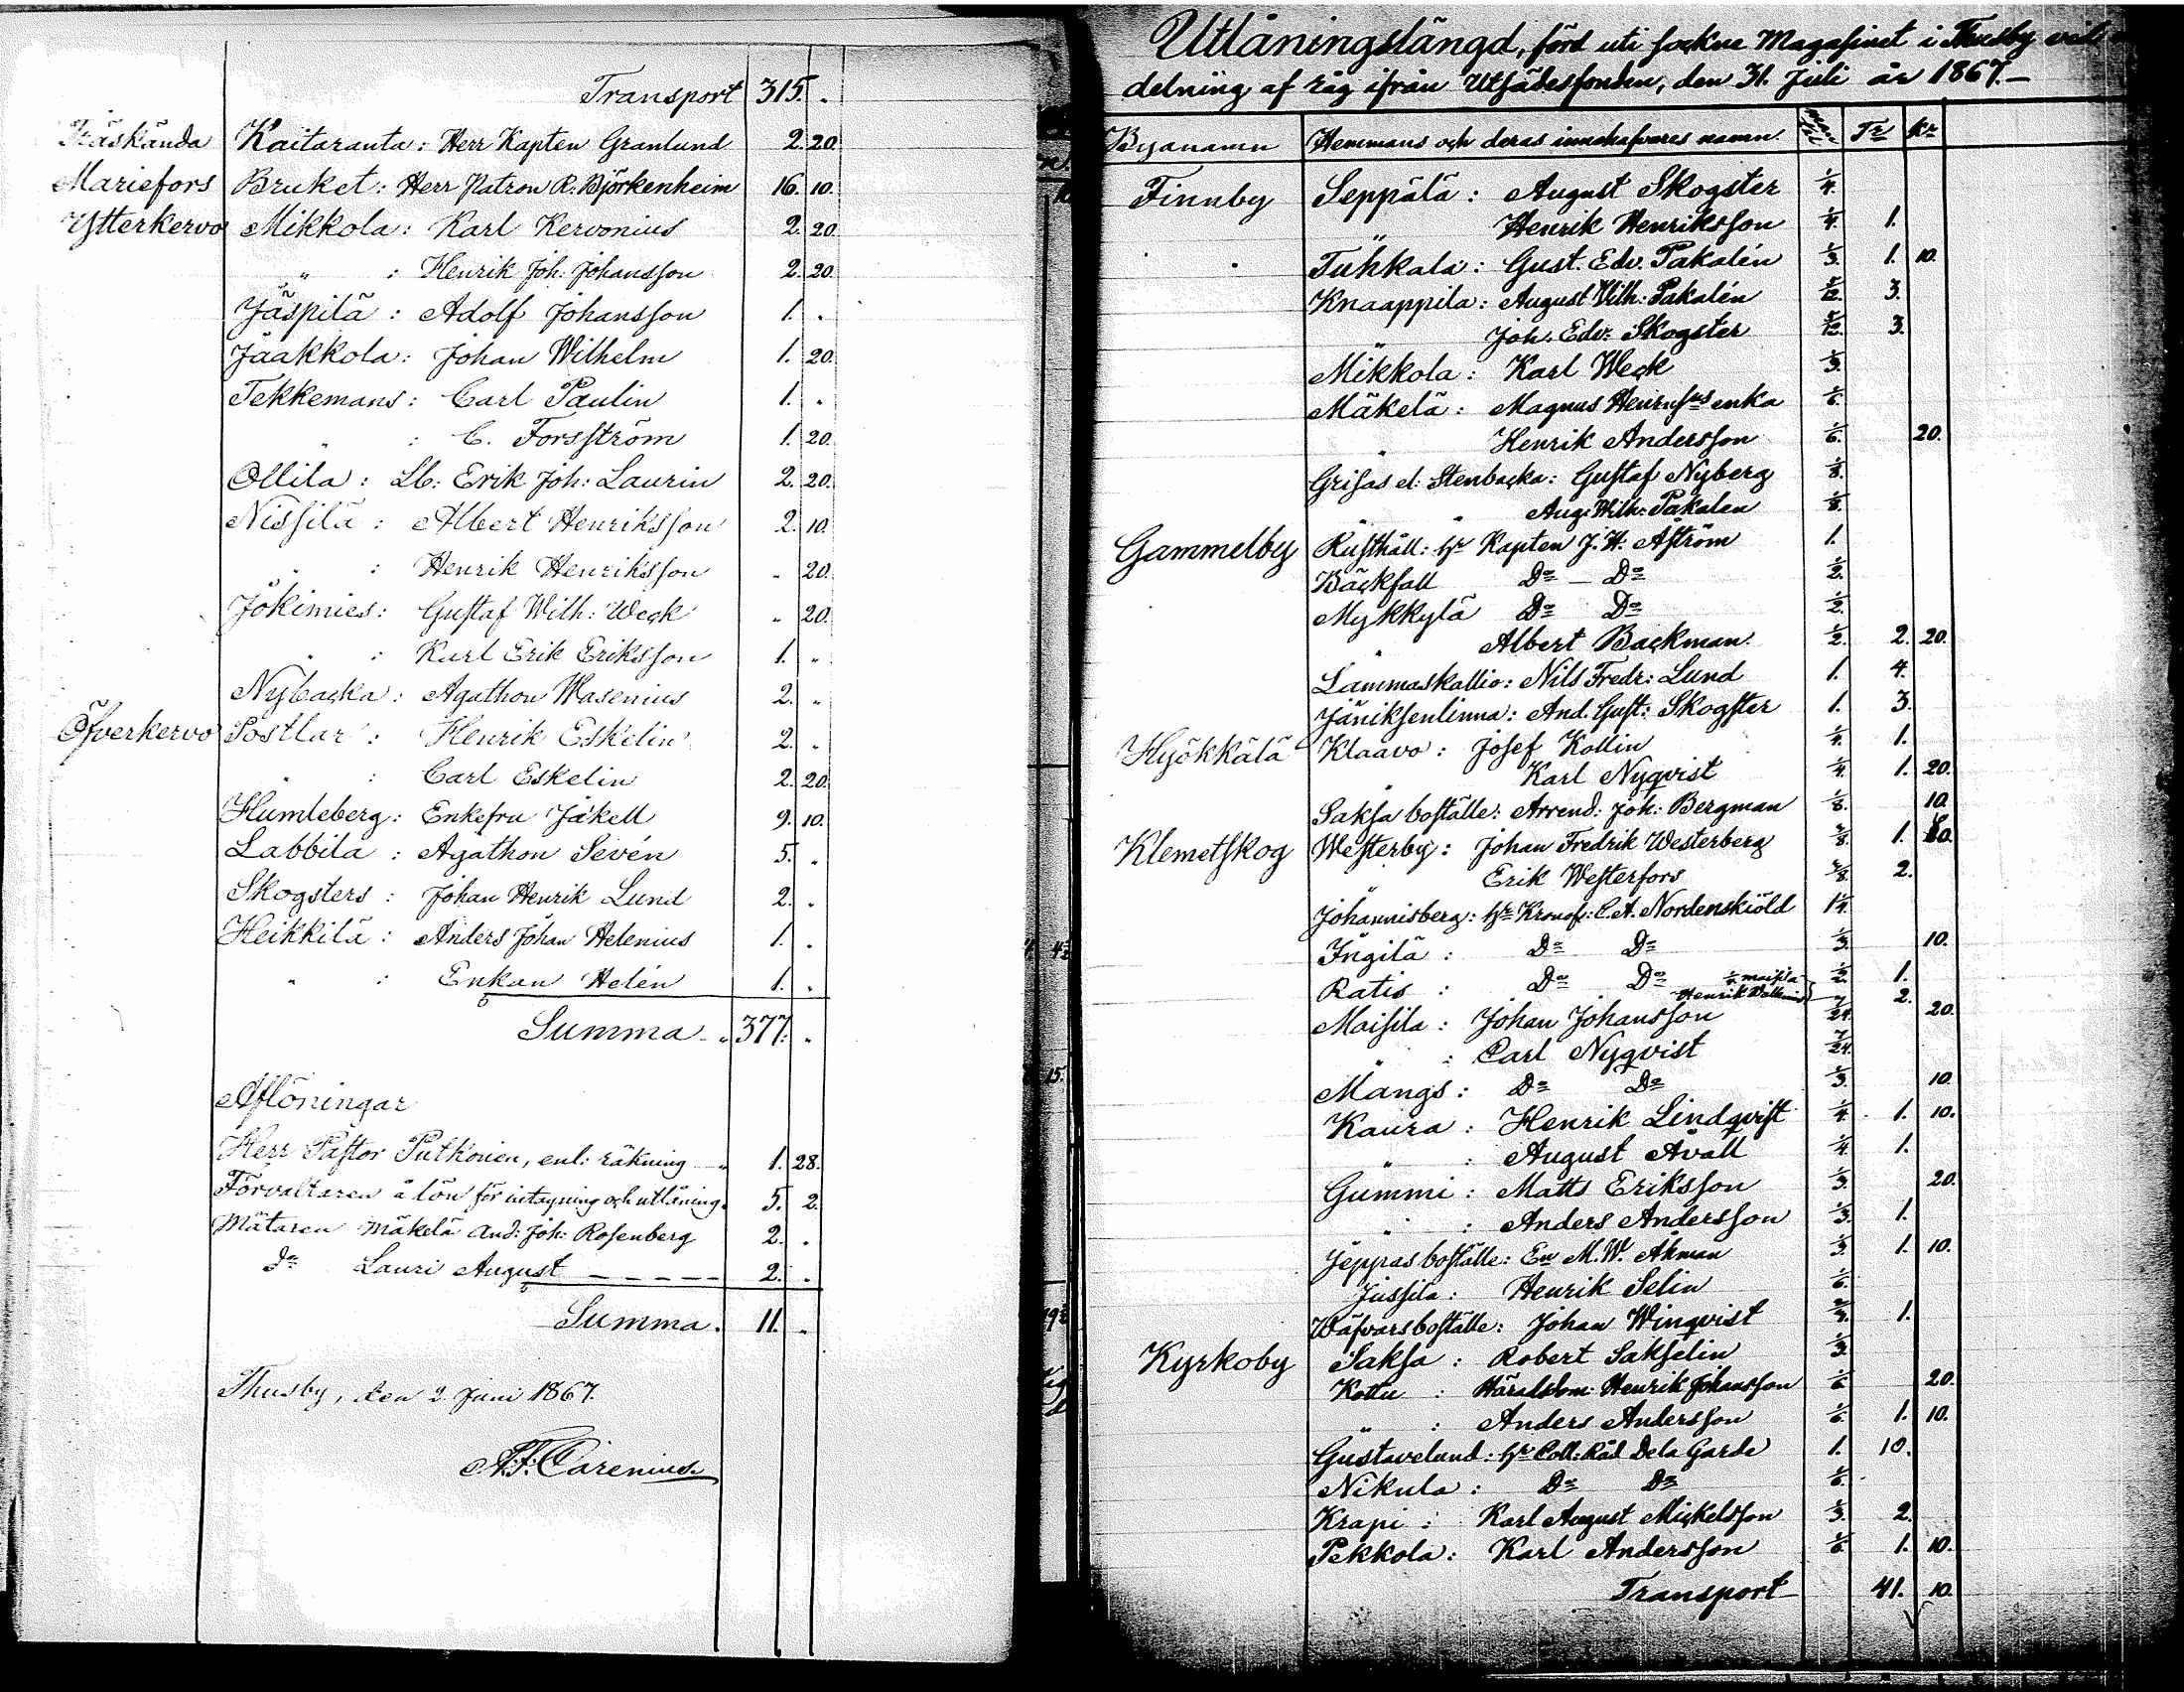 Transport 315. "
Träskända Kaitaranta: Herr Kapten Granlund 2. 20.
Mariefors Bruket: Herr Patron R. Björkenheim 16. 10.
Ytterkervo Mikkola: Karl Kervonius 2. 20.
" : Henrik Joh. Johansson 2. 20.
Jäspilä: Adolf Johansson 1. "
Jaakkola: Johan Wilhelm 1. 20.
Tekkemans: Carl Paulin 1. "
" : C. Forsström 1. 20.
Ollila: Lb: Erik Joh: Laurin 2. 20.
Nissilä: Albert Henriksson 2. 10.
" : Henrik Henriksson " 20.
Jokimies: Gustaf Wilh: Weck " 20.
" : Karl Erik Eriksson 1. "
Nybacka: Agathon Wasenius 2. "
Öfverkervo Postlar: Henrik Eskelin 2. "
" : Carl Eskelin 2. 20.
Humleberg: Enkefru Jäkell 9. 10.
Labbila: Agathon Sevén 5. "
Skogsters: Johan Henrik Lund 2. "
Heikkilä: Anders Johan Helenius 1. "
" : Enkan Helén 1. "
Summa " 377. "
Aflöningar
Herr Pastor Puthonen, enl: räkning " 1. 28.
Förvaltaren å lön för intagning och utlåning. 5. 2.
Mätaren Mäkelä And: Joh: Rosenberg 2. "
Do Lauri August 2. "
Summa. 11. "
Thusby, den 2 Juni 1867.
A. F. Carenius.
Utlåningslängd, förd uti sockne Magasinet i Thusby vid
delning af råg ifrån Utsädesfonden, den 31. Juli år 1867.
Byanamn Hemmans och deras innehafvares namn. Tr Kr
Finnby Seppälä: August Skogster 1/4.
" Henrik Henriksson 1/4. 1.
Tuhkala: Gust. Edv. Pakalén 1/3. 1. 10.
Knaappila: August Wilh: Pakalén 5/12. 3.
Joh. Edv: Skogster 5/12. 3.
Mikkola: Karl Weck 1/3.
Mäkelä: Magnus Henrikss enka 1/6.
" Henrik Andersson 1/6. 20.
Grisas el: Stenbacka: Gustaf Nyberg 1/8.
" Aug: Wilh: Pakalen 1/8.
Gammelby Rusthåll: Hr Kapten J. H. Åström 1.
Bäckfall Do Do 1/2.
Mykkylä Do Do 1/2.
" Albert Backman. 1/2. 2. 20.
Lammaskallio: Nils Fredr: Lund 1. 4.
Jäniksenlinna: And. Gust: Skogster 1. 3.
Hyökkälä Klaavo: Josef Kollin 1/4. 1.
" Karl Nyqvist 1/4. 1. 20.
Saksa boställe: Arrend: Joh: Bergman 1/8. 10.
Klemetskog Westerby: Johan Fredrik Westerberg 3/8. 1.
" Erik Westerfors 3/8. 2.
Johannisberg: Hr Kronof: C. A. Nordenskiöld 1 1/4.
Ingilä: Do Do 1/3. 10.
Ratis: Do Do 1/2. 1.
Henrik 2.
Maisila: Johan Johansson 7/24. 20.
" : Carl Nyqvist 7/24.
Mangs: Do Do 1/3. 10.
Kaura: Henrik Lindqvist 1/4. 1. 10.
" : August Avall 1/4. 1.
Gummi: Matts Eriksson 1/3. 20.
" : Anders Andersson 1/3. 1.
Jeppas boställe: En M. W. Åhman 1/3. 1. 10.
Jussila: Henrik Selin 1/6.
Wäfvars boställe: Johan Winqvist 1.
Kyrkoby Saksa: Robert Sakselin 1/3.
Kottu: Häradsdom: Henrik Johansson 1/6. 20.
" : Anders Andersson 1/6. 1. 10.
Gustavelund: Hr Coll: Råd De la Garde 1. 10.
Nikula: Do Do 1/6.
Krapi: Karl August Mickelsson 1/3. 2.
Pekkola: Karl Andersson 1/6. 1. 10.
Transport 41. 10.